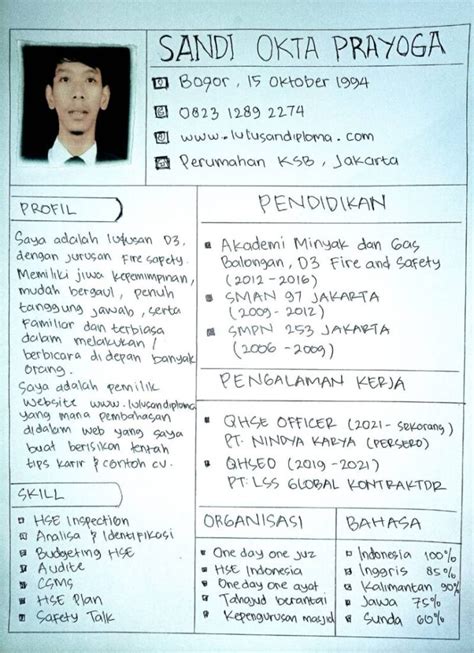 SANDI OKTA PRAYOGA
Bogor, 15 Oktober 1994
0823 1289 2274
www.lulusandiploma.com
Perumahan KSB, Jakarta
PROFIL
Saya adalah lulusan D3.
dengan jurusan Fire safety.
Memiliki jiwa kepemimpinan,
mudah bergaul, penuh
tanggung jawab, serta
Familiar dan terbiasa
dalam melakukan /
berbicara di depan banyak
orang.
Saya adalah pemilik
website www.lulusandiploma
yang mana pembahasan
didalam web yang saya
buat berisikan tentah
tips karir & contoh cv.
SKILL
HSE Inspection
Analisa & Identifikasi
Budgeting HSE
Audite
CSMS
HSE Plan
Safety Talk
PENDIDIKAN
Akademi Minyak dan Gas
Balongan, D3 Fire and Safety
(2012 - 2016)
SMAN 97 JAKARTA
(2009 - 2012)
SMPN 253 JAKARTA
(2006 - 2009)
PENGALAMAN KERJA
QHSE OFFICER (2021 - sekarang)
PT. NINDYA KARYA (PERSERO)
QHSEO (2019 - 2021)
PT. LSS GLOBAL KONTRAKTOR
ORGANISASI
One day one juz
HSE Indonesia
One day one ayat
Tahajud berantai
Kepengurusan masjid
BAHASA
Indonesia 100%
Inggris 85%
Kalimantan 90%
Jawa 75%
Sunda 60%